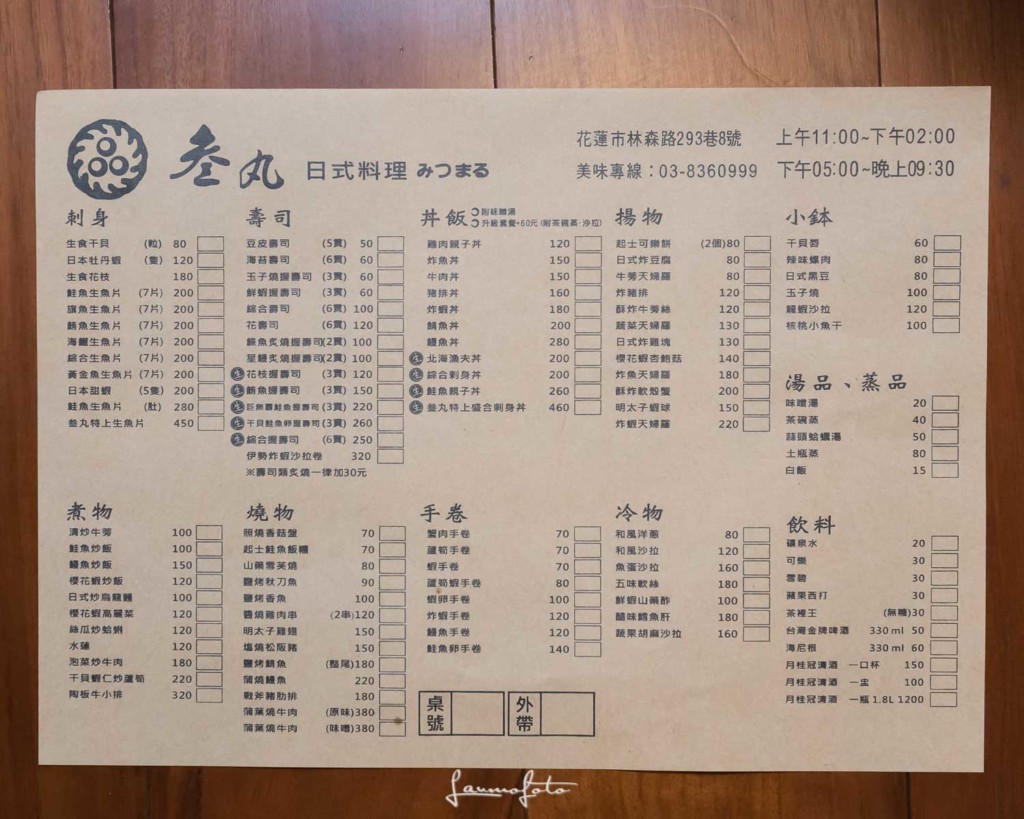 叁丸 日式料理 みつまる
花蓮市林森路293巷8號 上午11:00~下午02:00
美味專線：03-8360999 下午05:00~晚上09:30
刺身
生食干貝 (粒) 80
日本牡丹蝦 (隻) 120
生食花枝 180
鮭魚生魚片 (7片) 200
旗魚生魚片 (7片) 200
鮪魚生魚片 (7片) 200
海鱺生魚片 (7片) 200
綜合生魚片 (7片) 200
黃金魚生魚片 (7片) 200
日本甜蝦 (5隻) 200
鮭魚生魚片 (肚) 280
叁丸特上生魚片 450
壽司
豆皮壽司 (5貫) 50
海苔壽司 (6貫) 60
玉子燒握壽司 (3貫) 60
鮮蝦握壽司 (3貫) 60
綜合壽司 (6貫) 100
花壽司 (6貫) 120
鮭魚炙燒握壽司(2貫) 100
星鰻炙燒握壽司(2貫) 100
生 花枝握壽司 (3貫) 120
生 鮪魚握壽司 (3貫) 150
生 巨無霸鮭魚握壽司 (3貫) 220
生 干貝鮭魚卵握壽司 (3貫) 260
生 綜合握壽司 (6貫) 250
伊勢炸蝦沙拉卷 320
※壽司類炙燒一律加30元
丼飯
附味噌湯
升級套餐+60元 (附茶碗蒸、沙拉)
雞肉親子丼 120
炸魚丼 150
牛肉丼 150
豬排丼 160
炸蝦丼 180
鯖魚丼 200
鰻魚丼 280
生 北海漁夫丼 200
生 綜合刺身丼 200
生 鮭魚親子丼 260
生 叁丸特上盛合刺身丼 460
揚物
起士可樂餅 (2個)80
日式炸豆腐 80
牛蒡天婦羅 80
炸豬排 120
酥炸牛蒡絲 120
蔬菜天婦羅 130
日式炸雞塊 130
櫻花蝦杏鮑菇 140
炸魚天婦羅 180
酥炸軟殼蟹 200
明太子蝦球 150
炸蝦天婦羅 220
小鉢
干貝唇 60
辣味螺肉 80
日式黑豆 80
玉子燒 100
龍蝦沙拉 120
核桃小魚干 100
湯品、蒸品
味噌湯 20
茶碗蒸 40
蒜頭蛤蠣湯 50
土瓶蒸 80
白飯 15
煮物
清炒牛蒡 100
鮭魚炒飯 100
鰻魚炒飯 150
櫻花蝦炒飯 120
日式炒烏龍麵 100
櫻花蝦高麗菜 120
絲瓜炒蛤蜊 120
水蓮 120
泡菜炒牛肉 180
干貝蝦仁炒蘆筍 220
陶板牛小排 320
燒物
照燒香菇盤 70
起士鮭魚飯糰 70
山藥雪芙燒 80
鹽烤秋刀魚 90
鹽烤香魚 100
醬燒雞肉串 (2串)120
明太子雞翅 150
塩燒松阪豬 150
鹽烤鯖魚 (整尾)180
蒲燒鰻魚 220
戰斧豬肋排 180
蒲葉燒牛肉 (原味)380
蒲葉燒牛肉 (味噌)380
手卷
蟹肉手卷 70
蘆筍手卷 70
蝦手卷 70
蘆筍蝦手卷 80
蝦卵手卷 100
炸蝦手卷 120
鰻魚手卷 120
鮭魚卵手卷 140
冷物
和風洋蔥 80
和風沙拉 120
魚蛋沙拉 160
五味軟絲 180
鮮蝦山藥酢 100
醋味鱈魚肝 180
蔬果胡麻沙拉 160
飲料
礦泉水 20
可樂 30
雪碧 30
蘋果西打 30
茶裡王 (無糖)30
台灣金牌啤酒 330 ml 50
海尼根 330 ml 60
月桂冠清酒 一口杯 150
月桂冠清酒 一壺 100
月桂冠清酒 一瓶 1.8L 1200
桌號
外帶